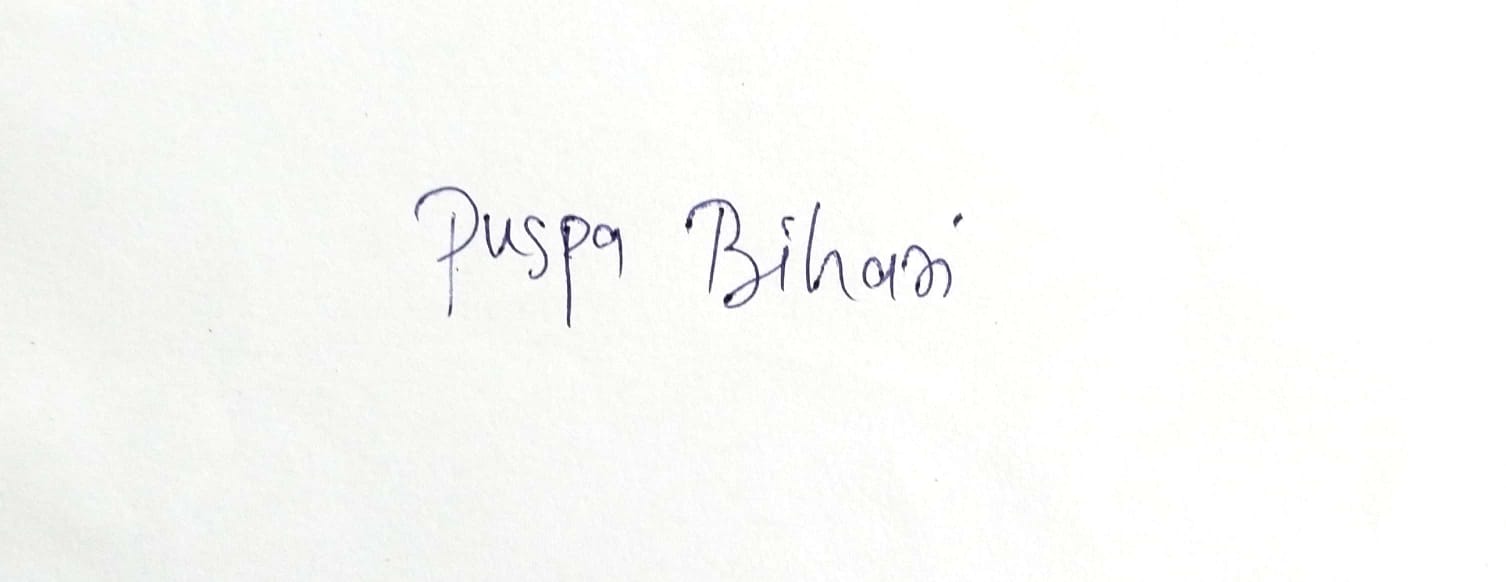 Puspa Bihari